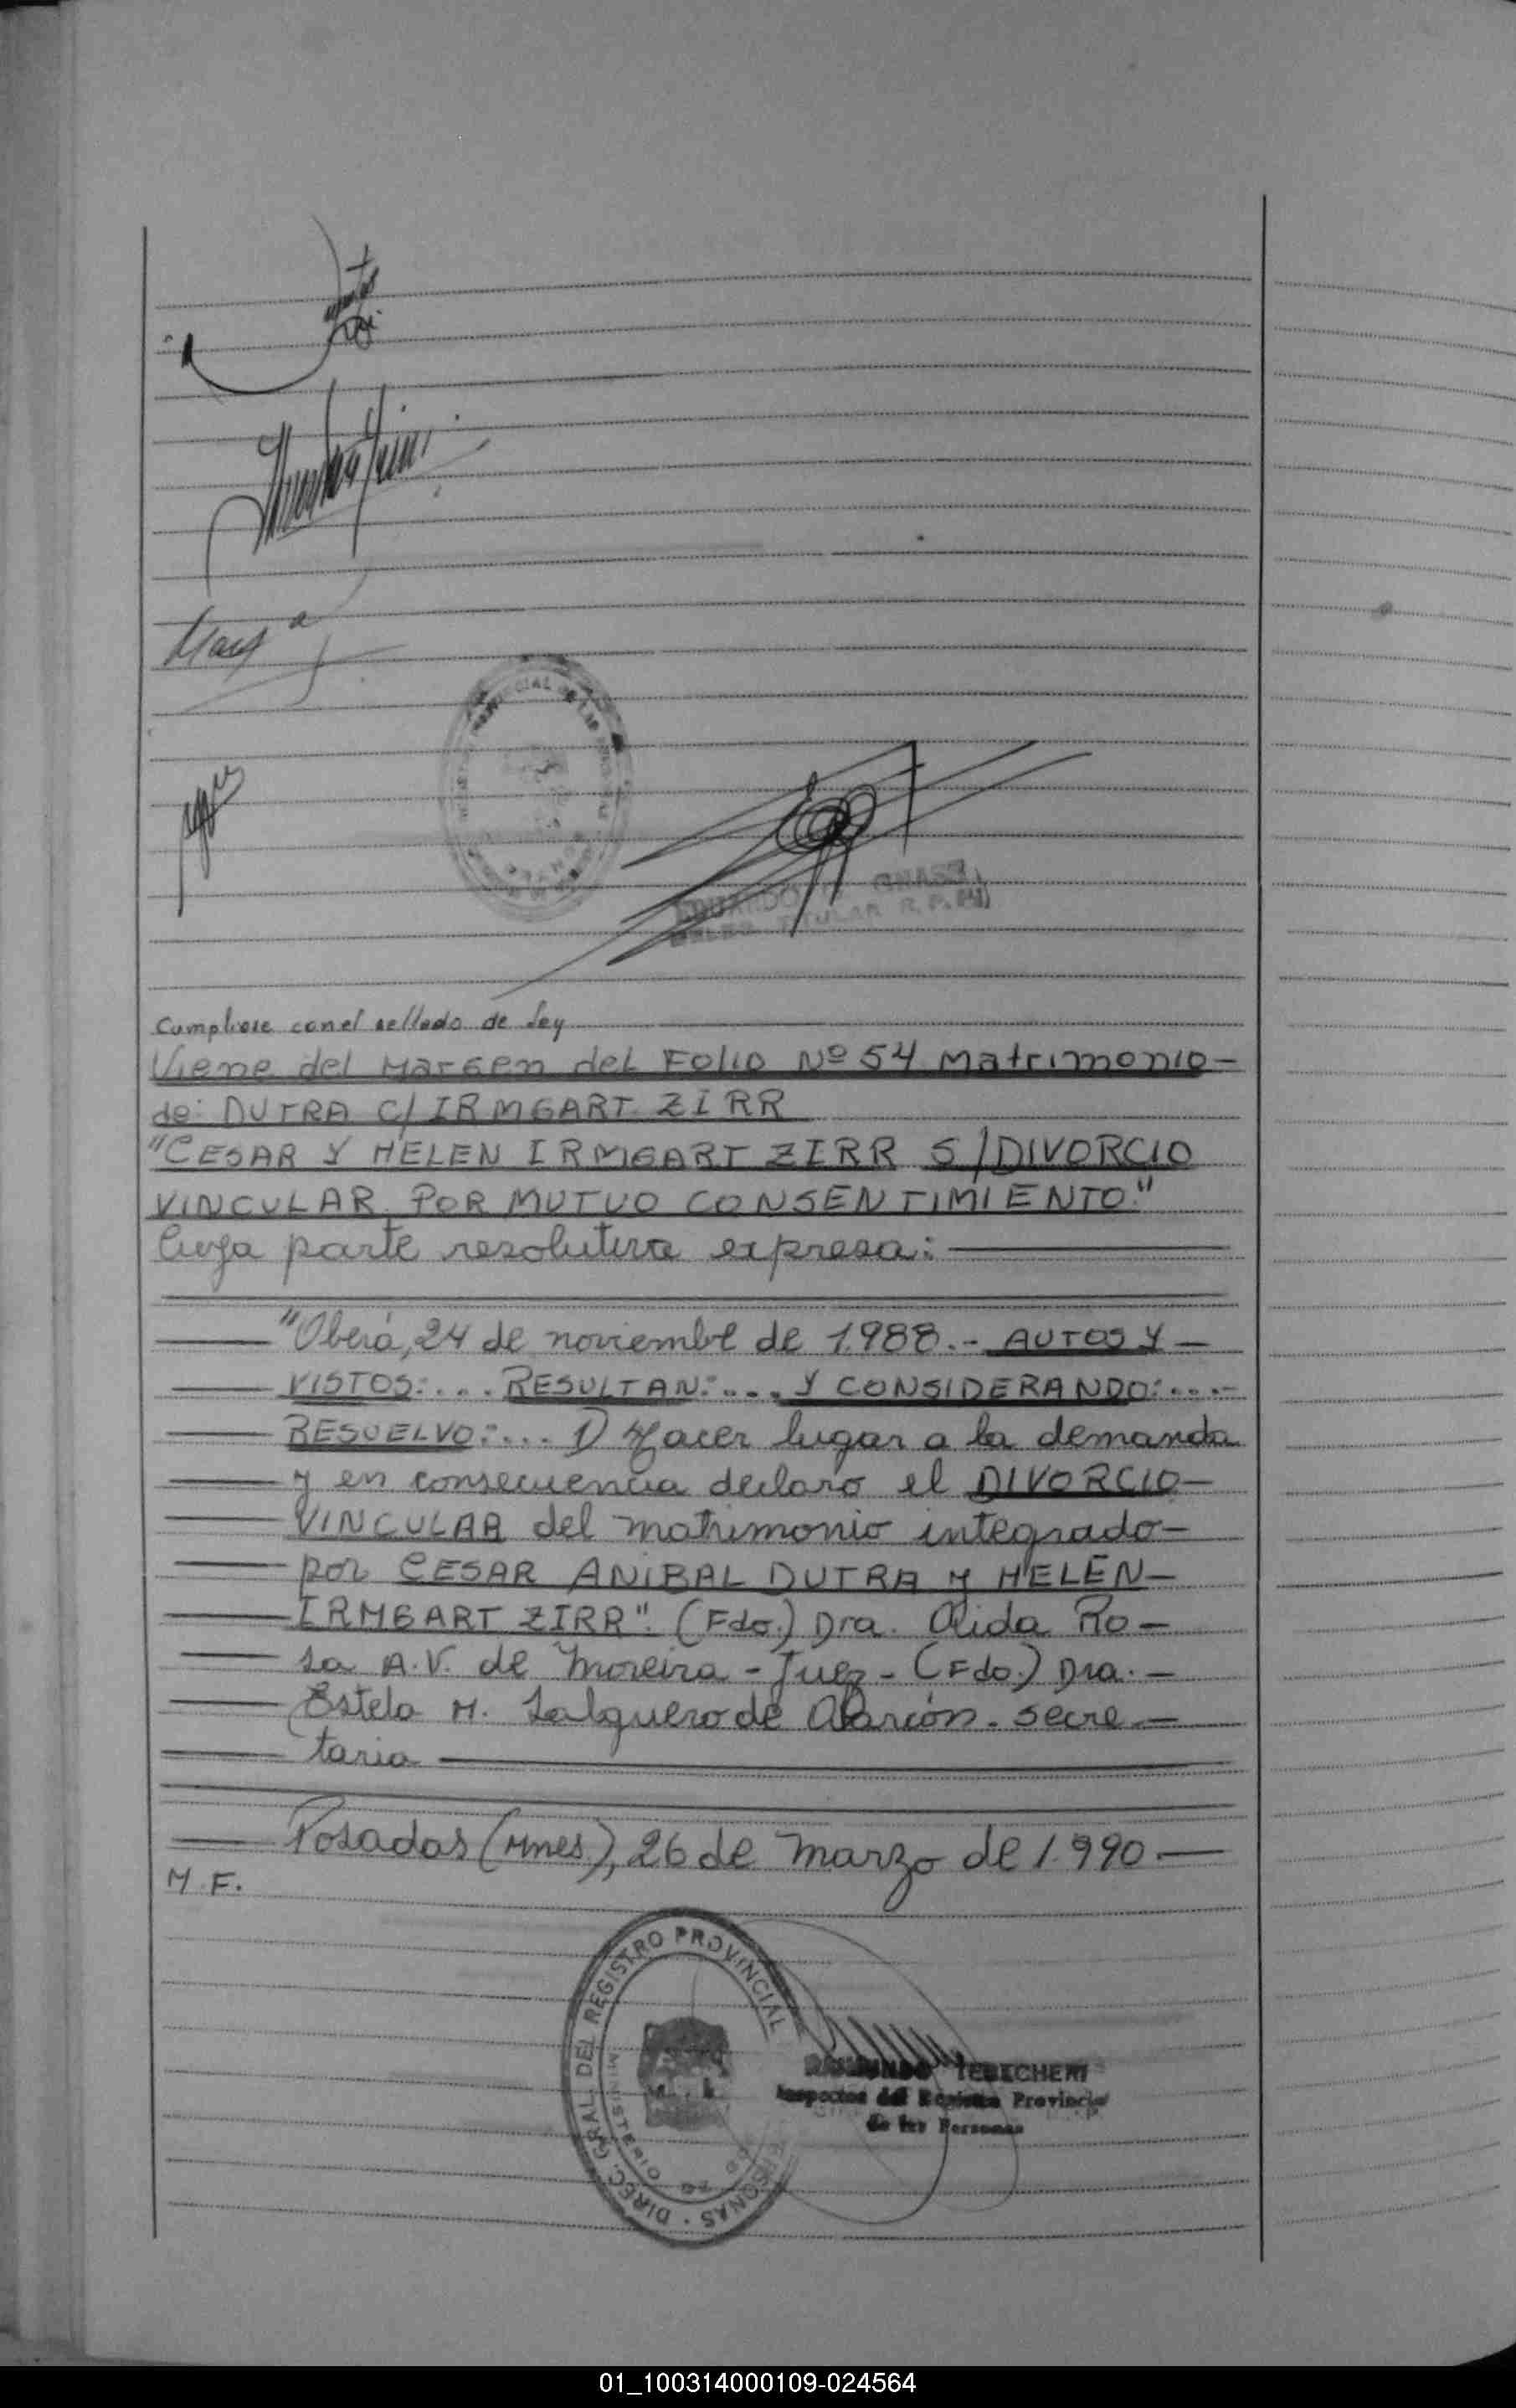 Cumpliose con el sellado de Ley
Viene del Margen del Folio Nº 54 Matrimonio-
de: DUTRA C/ IRMGART ZIRR
"CESAR Y HELEN IRMGART ZIRR S/DIVORCIO
VINCULAR POR MUTUO CONSENTIMIENTO."
Cuya parte resolutiva expresa:
"Oberá, 24 de noviembre de 1988.- AUTOS Y
VISTOS:.... RESULTAN:.... Y CONSIDERANDO:....-
RESUELVO:... 1) Hacer lugar a la demanda
y en consecuencia declaro el DIVORCIO-
VINCULAR del matrimonio integrado-
por CESAR ANIBAL DUTRA y HELEN-
IRMGART ZIRR". (Fdo.) Dra. Aida Ro-
sa A.V. de Moreira - Juez - (Fdo.) Dra. -
Estela M. Salguero de Alarcón. Secre-
taria
Posadas (Mnes.), 26 de Marzo de 1.990-
M.F.
DIREC. GRAL. DEL REGISTRO PROVINCIAL PERSONAS
MINISTERIO
TEBECHERI
Inspector del Registro Provincial
de las Personas
01_100314000109-024564